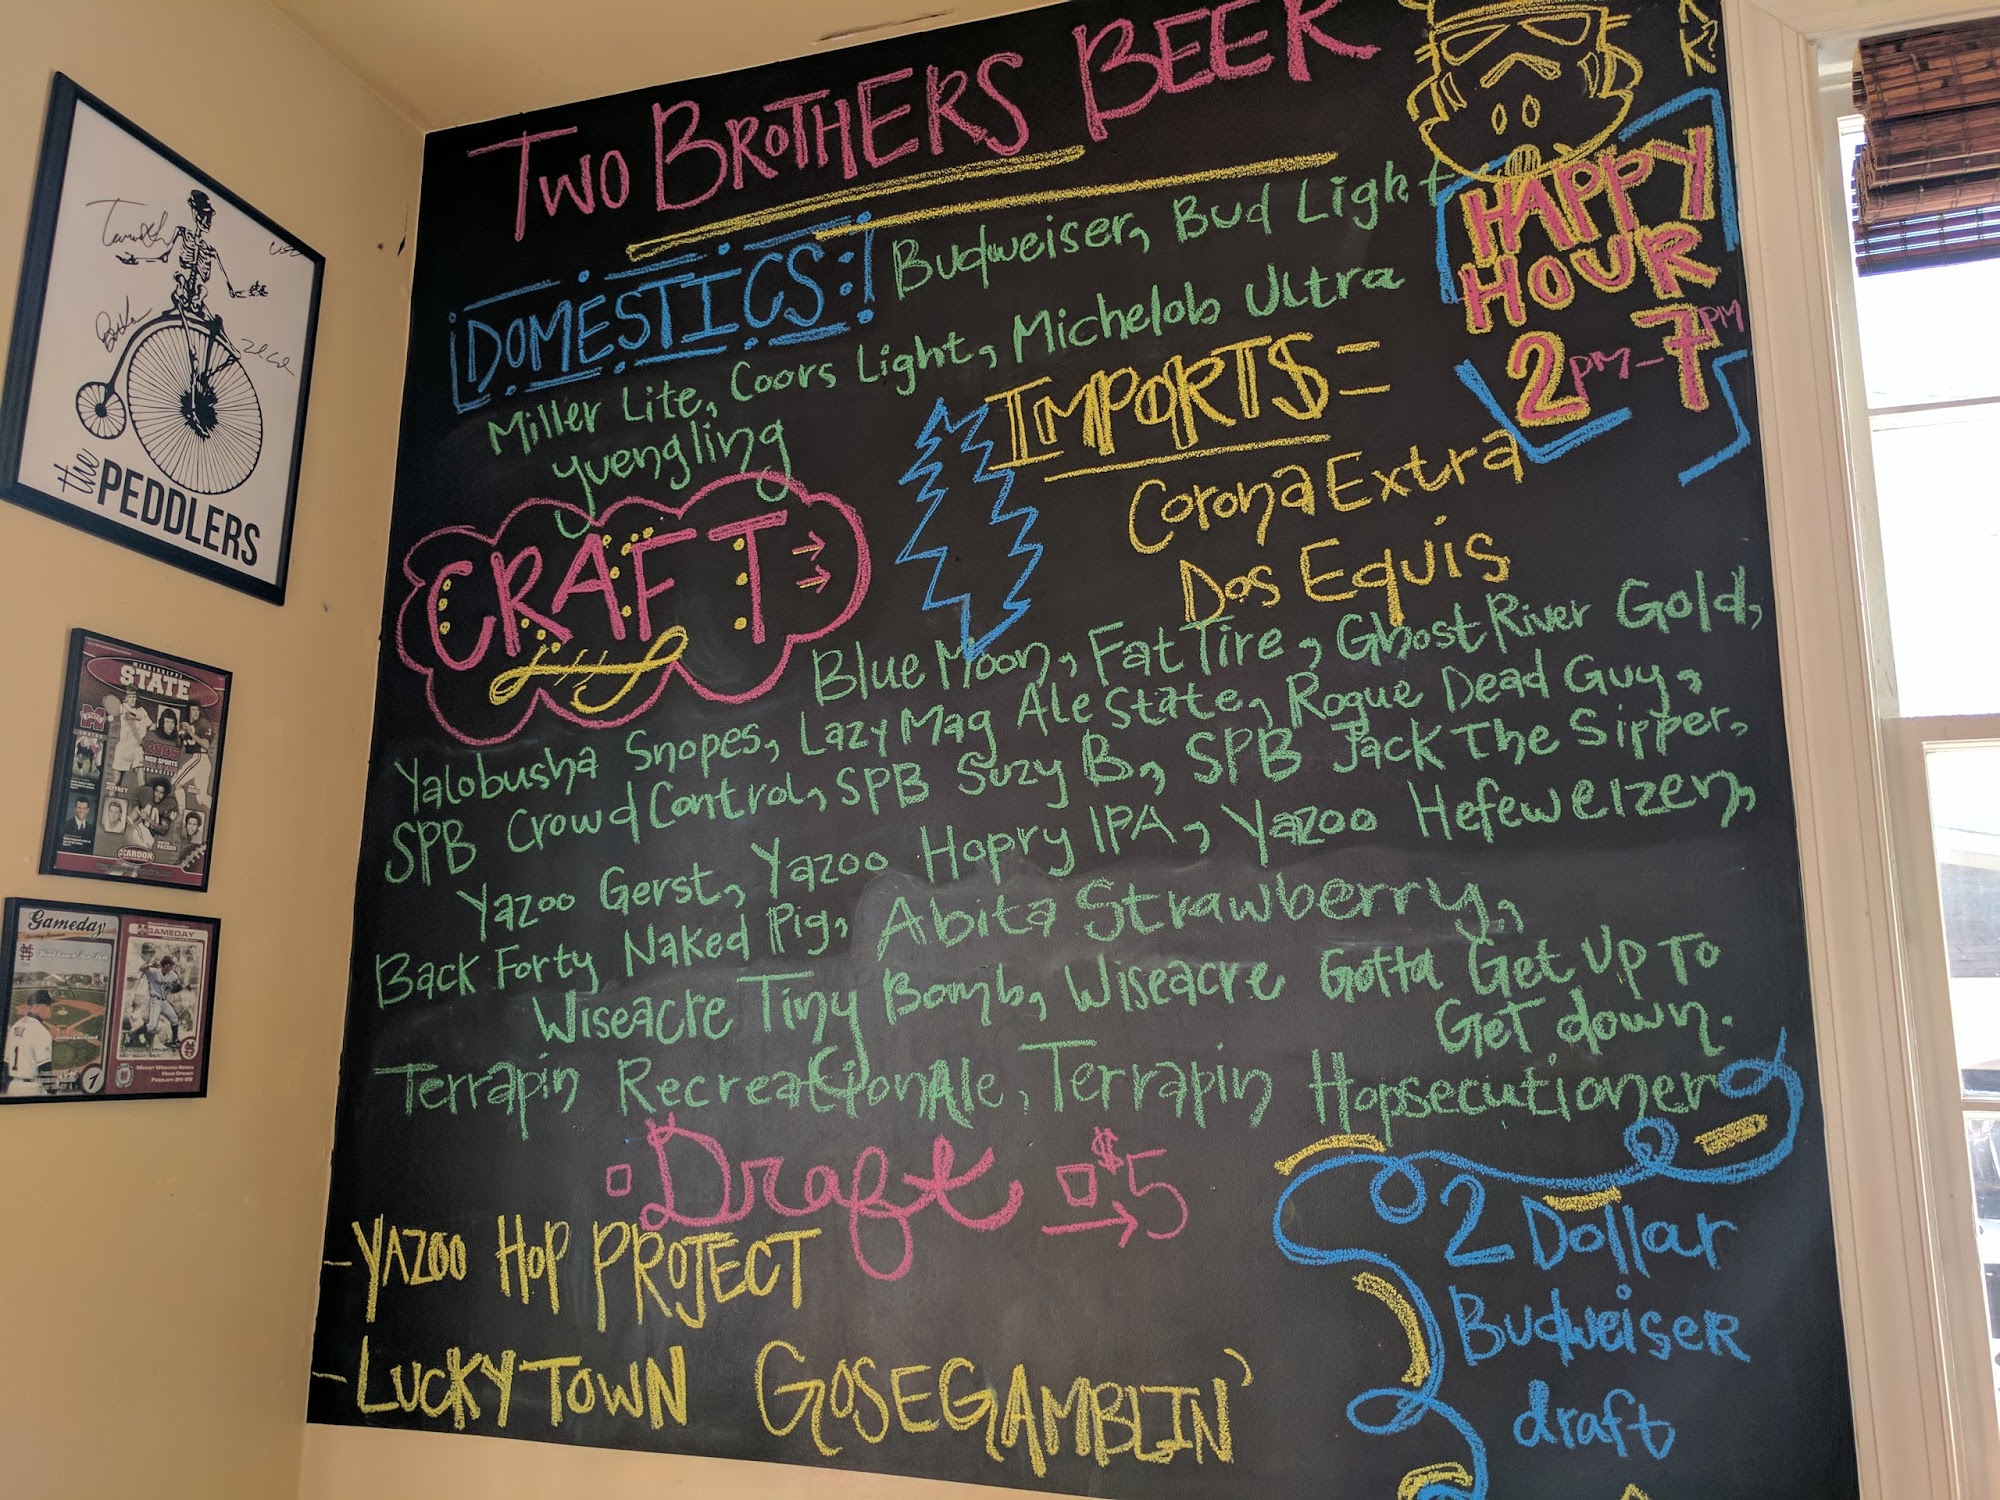 TWO BROTHERS BEER
DOMESTICS: Budweiser, Bud Light
Miller Lite, Coors Light, Michelob Ultra
yuengling
HAPPY
HOUR
2PM-7PM
IMPORTS=
Corona Extra
Dos Equis
CRAFT
Blue Moon, Fat Tire, Ghost River Gold,
Yalobusha Snopes, Lazy Mag Ale State, Rogue Dead Guy,
SPB Crowd Control, SPB Suzy B, SPB Jack The Sipper,
Yazoo Gerst, Yazoo Hopry IPA, Yazoo Hefeweizen,
Back Forty Naked Pig, Abita Strawberry,
Wiseacre Tiny Bomb, Wiseacre Gotta Get Up To
Get down.
Terrapin Recreation Ale, Terrapin Hopsecutioner
Draft $5
-YAZOO HOP PROJECT
-LUCKY TOWN GOSE GAMBLIN'
2 Dollar
Budweiser
draft
the
PEDDLERS
MISSISSIPPI
STATE
2005
Gameday
GAMEDAY
1